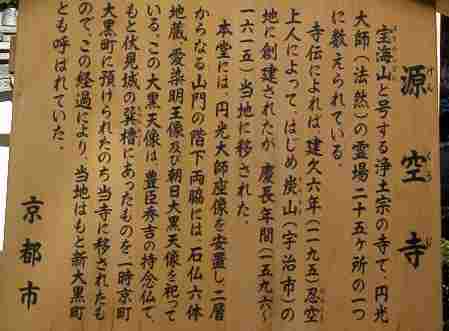 源空寺
げんくうじ
宝海山と号する浄土宗の寺で、円光
大師（法然）の霊場二十五ヶ所の一つ
に数えられている。
寺伝によれば、建久六年（一一九五）忍空
上人によって、はじめ炭山（宇治市）の
地に創建されたが、慶長年間（一五九六〜
一六一五）当地に移された。
本堂には、円光大師座像を安置し、二層
からなる山門の階下両脇には、石仏六体
地蔵、愛染明王像及び朝日大黒天像を祀って
いる。この大黒天像は、豊臣秀吉の持念仏で、
もと伏見城の巽櫓にあったものを一時京町
大黒町に預けられたのち当寺に移されたも
ので、この経過により、当地はもと新大黒町
とも呼ばれていた。
京都市